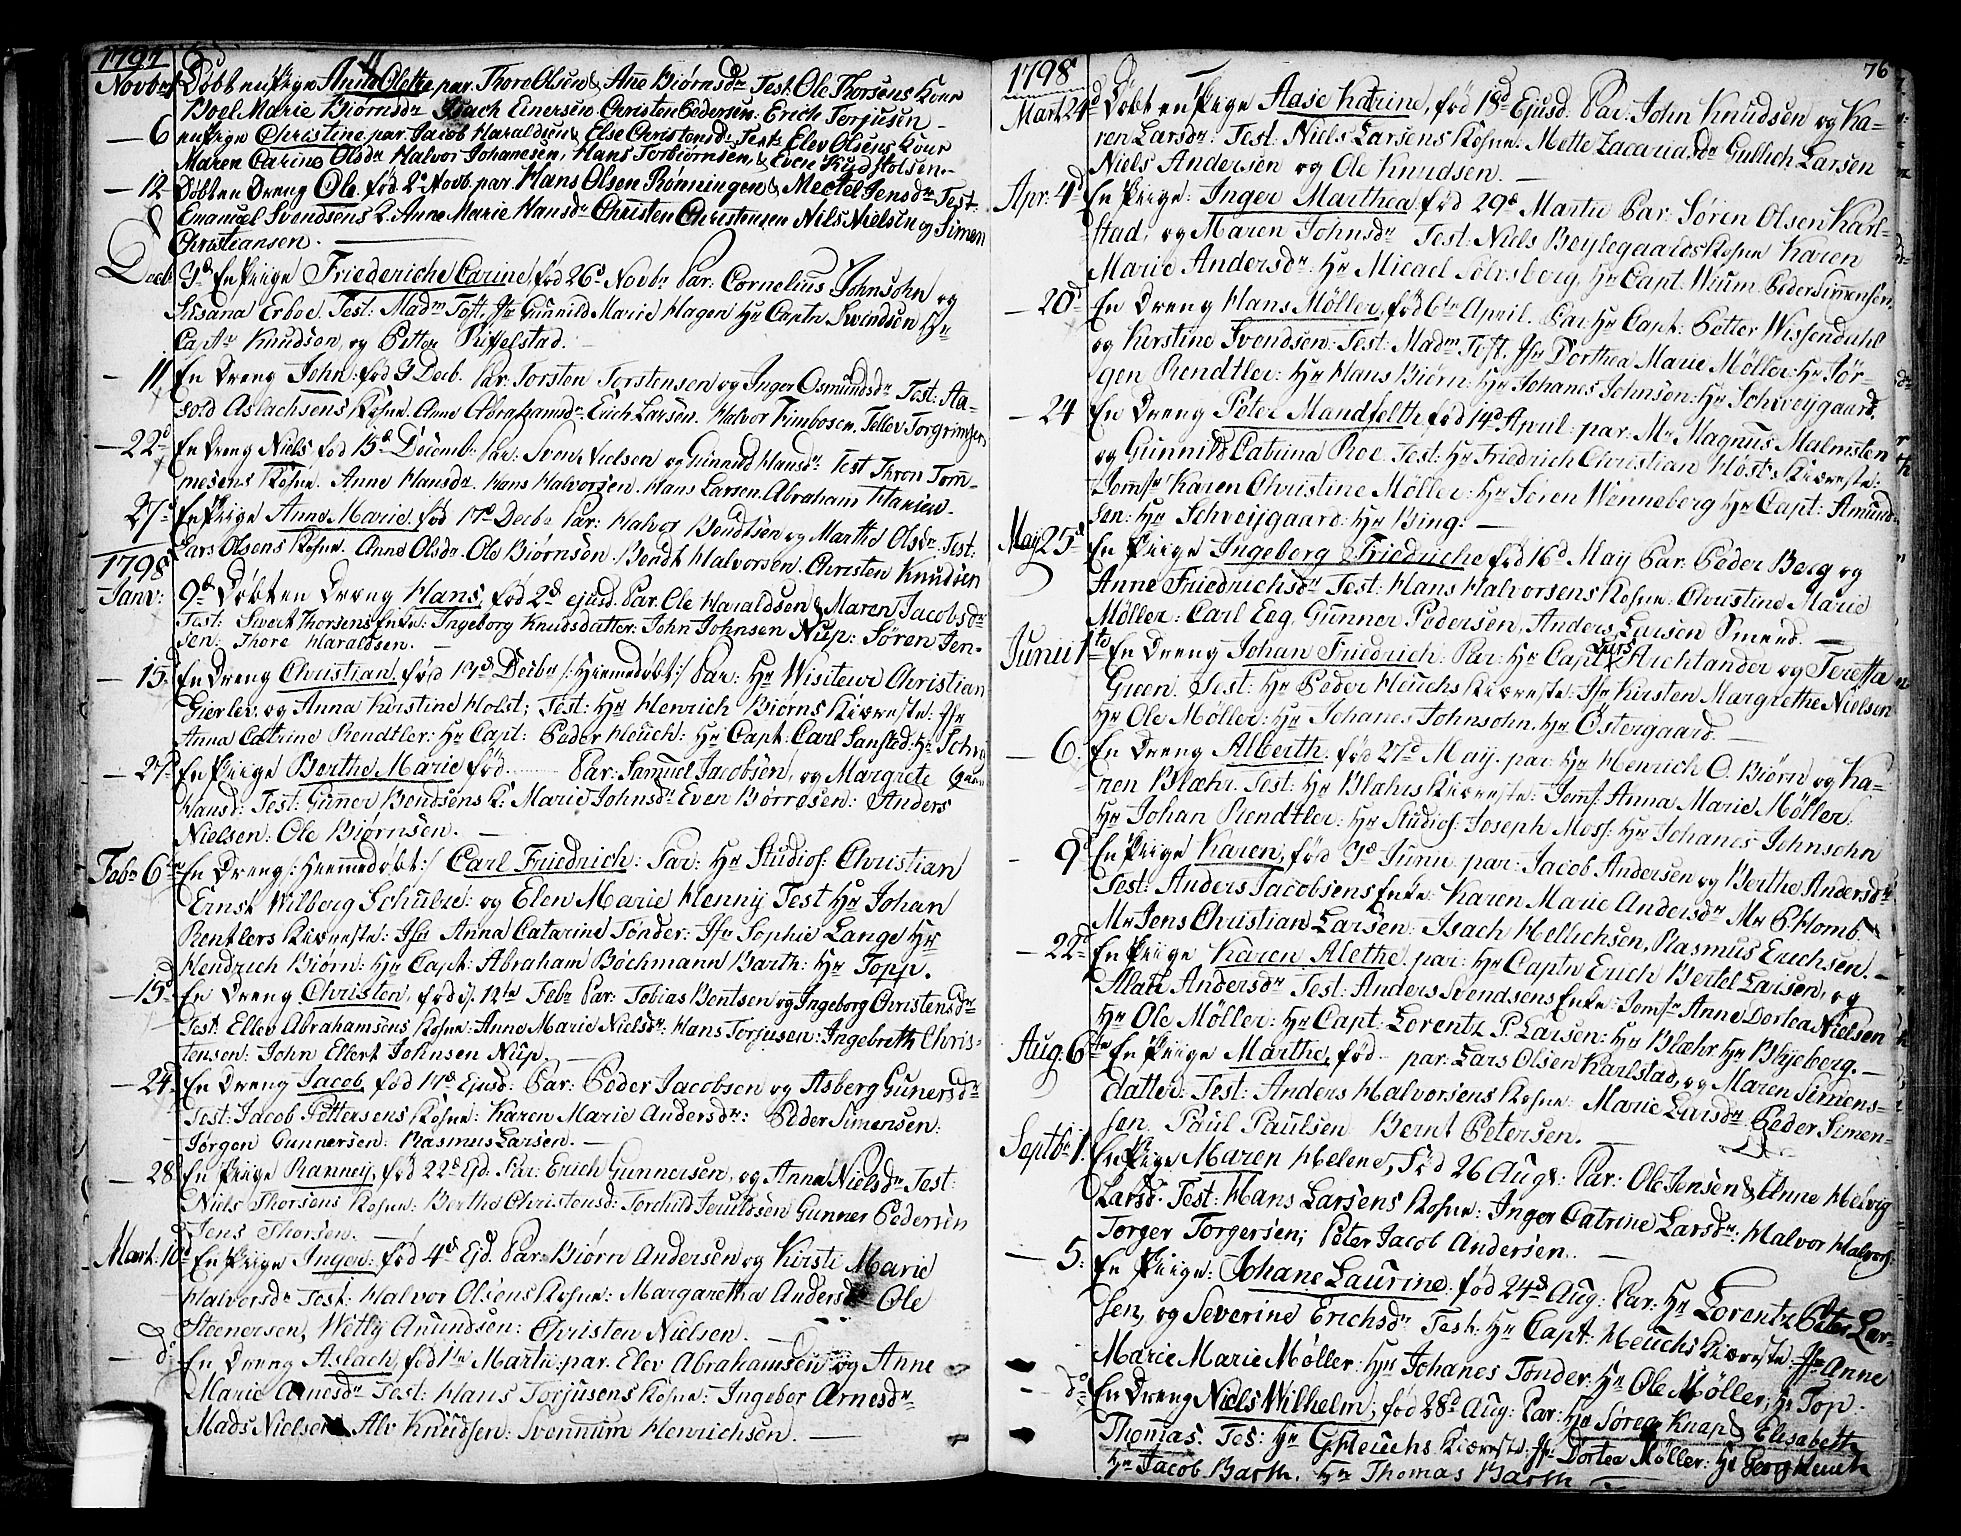 1797
Novbr 4 Døbt en Pige Anne Olette par. Thore Olsen & Ane Biørnsdr Test: Ole Thorsens Kone
Boel Marie Biørnsdr Isach Einersen Christen Pedersen: Erich Torjusen
— 6 en Pige Christine par. Jacob Haraldsen & Else Christensdr Test: Elev Olsens Kone
Maren Carine Olsdr Halvor Johanesen, Hans Torbiørnsen, & Even Knudsen
— 12 Døbt en Dreng Ole, fød 2d Novb. par. Hans Olsen Rønningen & Mectel Jensdr Test:
Emanuel Svendsens K. Anne Marie Hansdr Christen Christensen Nils Nielsen og Simen
Christiansen. —
Decb. 3d En Piige Friederiche Carine, fød 26d Novbr Par: Cornelius Johnsohn og
Susana Erboe. Test: Madm Toft. Jfr Gunnild Marie Hagen Hr Captn Svendsen Hr
Captn Knudsen, og Petter Riffelstad.
— 11 En Dreng John: fød 3 Decb. Par: Torsten Torstensen og Inger Osmundsdr Test: Aa-
sold Aslachsens Kohne. Anne Abrahamsdr Erich Larsen. Halvor Kimbosen, Tellev Torgrimsen
— 22d En Dreng Niels fød 15d Decemb. Par: Sven Nielsen og Gunnild Hansdr Test Thron Tom-
mesens Kohne. Anne Hansdr. Hans Halvorsen. Hans Larsen. Abraham Titansen.
27d En Piige Anne Marie, fød 17d Decbr Par: Halvor Bendtsen og Marthe Olsdr. Test:
Lars Olsens Kohne. Anne Olsdr. Ole Biørnsen. Bendt Halvorsen. Christen Knudsen
1798
Janv: 9d Døbt en Dreng Hans, fød 2d ejusd. Par: Ole Haraldsen & Maren Jacobsdr
Test: Sivert Thorsens Enke: Ingeborg Knudsdatter: John Johnsen Nup: Søren Jen-
sen: Thore Haraldsen. —
— 15. En Dreng Christian, fød 13d Decbr /: Hiemedøbt:/ Par: Hr Visiteur Christian
Gierlev, og Anna Kirstine Holst; Test: Hr Henrich Biørns Kiæreste: Jfr
Anna Catrine Rendtler: Hr Capt: Peder Heuch: Hr Capt: Carl Sansted: Hr Schvey
— 27d En Piige Berthe Marie fød ...... Par: Samuel Jacobsen, og Margrete
Hansd: Test: Gunner Bendsens K: Marie Johnsdr Even Børresen: Anders
Nielsen: Ole Biørnsen. —
Febr 6te En Dreng /: Hiemmedøbt:/ Carl Friedrich: Par: Hr Studios: Christian
Ernst Wilberg Schultze: og Elen Marie Henny Test Hr Johan
Rentlers Kiæreste: Jfr Anna Catarine Tønder: Jfr Sophie Lange Hr
Hendrich Biørn: Hr Capt: Abraham Bochmann Barth: Hr Topp.
— 15d En Dreng Christen, fød d. 12te Febr Par: Tobias Bentsen og Ingeborg Christensdr
Test: Ellev Abrahamsens Kohne: Anne Marie Nielsdr: Hans Torjusen: Ingebreth Chris-
tensen: John Ellert Johnsen Nup. —
— 24. En Dreng Jacob, fød 17d Ejusd: Par: Peder Jacobsen og Asberg Gunersdr
Test: Jacob Pettersens Kohne: Karen Marie Andersdr: Peder Simensen:
Jørgen Gunnersen: Rasmus Larsen. —
— 28 En Piige Ranney, fød 22d Ejd. Par: Erich Gunnersen, og Anne Nielsdr Test:
Niels Thorsens Kohne: Berthe Christensd: Torchild Jeruldsen Gunner Pedersen
Jens Thorsen. —
Mart. 10d En Piige Inger: fød 4d Ejd. Par: Biørn Andersen og Kirsti Marie
Halvorsdr Test: Halvor Olsens Kohne: Margaretha Andersdr Ole
Steenersen, Wetly Anundsen: Christen Nielsen. —
— do En Dreng Aslach, fød 1te Martii. par. Elev Abrahamsen og Anne
Marie Arnesdr Test: Hans Torjusens Kohne: Ingebor Arnesdr
Mads Nielsen Alv Knudsen: Svennum Henrichsen. —
76
1798
Mart 24d Døbt en Piige Aase Katrine, fød 18d Ejusd. Par: John Knudsen og Ka-
ren Larsdr: Test: Niels Larsens Kohne: Mette Zacariasdr Gullich Larsen
Niels Andersen og Ole Knudsen. —
Apr. 4d En Piige: Inger Marthea fød 29d Martii Par: Søren Olsen Karl-
stad, og Maren Johnsdr Test: Niels Beylegaards Kohne Karen
Marie Andersdr. Hr Micael Sølvsberg. Hr Capt. Wium. Peder Simensen.
— 20d En Dreng Hans Møller, fød 6te April. Par: Hr Capt: Petter Wissendahl
og Kerstine Svendsen: Test: Madm Toft. Jfr Dorthea Marie Møller: Hr Jør-
gen Rendtler: Hr Hans Biørn: Hr Johanes Johnsen: Hr Schveygaard.
— 24 En Dreng Peter Mandfelth fød 14d April: par. Mr Magnus Malmsten
og Gunnild Catrina Roe. Test: Hr Friedrich Christian Høsts Kiæreste:
Jomfr Karen Christine Møller: Hr Søren Wenneberg Hr Capt: Amund-
sen: Hr Schveijgaard: Hr Bing. —
May 25d En Piige Ingeborg Friedriche fød 16d May Par: Peder Berg og
Anne Friedrichsdr Test: Hans Halvorsens Kohne: Christine Marie
Møller: Carl Eeg, Gunner Pedersen, Anders Larsen Smend. —
Junii 1te En Dreng Johan Friedrich: Par: Hr Capt: Lars Archtander og Teretta
Green. Test: Hr Peder Heuchs Kiæreste: Jfr Kirsten Margrethe Nielsen
Hr Ole Møller: Hr Johanes Johnsohn. Hr Østergaard. —
— 6. En Dreng Alberth. fød 27d May. par: Hr Henrich O. Biørn og Ka-
ren Blæhr. Test: Hr Blæhrs Kiæreste: Jomf: Anna Marie Møller:
Hr Johan Rendtler: Hr Studios: Joseph Moss: Hr Johanes Johnsohn
— 9d En Piige Karen, fød 3d Junii par: Jacob Andersen og Berthe Andersdr
Test: Anders Jacobsens Enke: Karen Marie Andersdr Mr P. Homb.
Mr Jens Christian Larsen: Isach Hellichsen, Rasmus Erichsen. —
— 22d En Piige Karen Alethe. par: Hr Captn Erich Bertel Larsen, og
Alan Andersdr Test: Anders Svendsens Enke: Jomfr Anne Dortea Nielsen
Hr Ole Møller: Hr Capt: Lorentz P. Larsen: Hr Blæhr Hr Blijeberg. —
Aug. 6te En Piige Marthe, fød — par: Lars Olsen Karlstad, og Maren Simens-
datter. Test: Anders Halvorsens Kohne: Marie Larsdr Peder Simen-
sen Paul Paulsen Bernt Petersen. —
Septbr 1. En Pige Maren Helene, Fød 26 Aug: Par: Ole Jensen & Anne Helvig
Larsd: Test: Hans Larsens Kohne: Inger Catrine Larsdr: Halvor Halvors:
Torger Torgersen; Peter Jacob Andersen. —
— 5: En Piige: Johane Laurine: fød 24d Aug: Par: Hr Lorentz Peter Lar-
sen, og Severine Erichsdr Test: Hr Capt: Heuchs Kiæreste Jfr Anne
Marie Marie Møller: Hr Johanes Tønder: Hr Ole Møller; Hr Top
— do En Dreng Niels Wilhelm, fød 28d Aug: Par: Hr Søren Knap & Elisabeth
Thomas. Tes: Hr G. Heuchs Kiæreste: Jfr Dortea Møller: Hr Georg Heuch
Hr Jacob Barth. Hr Thomas Barth